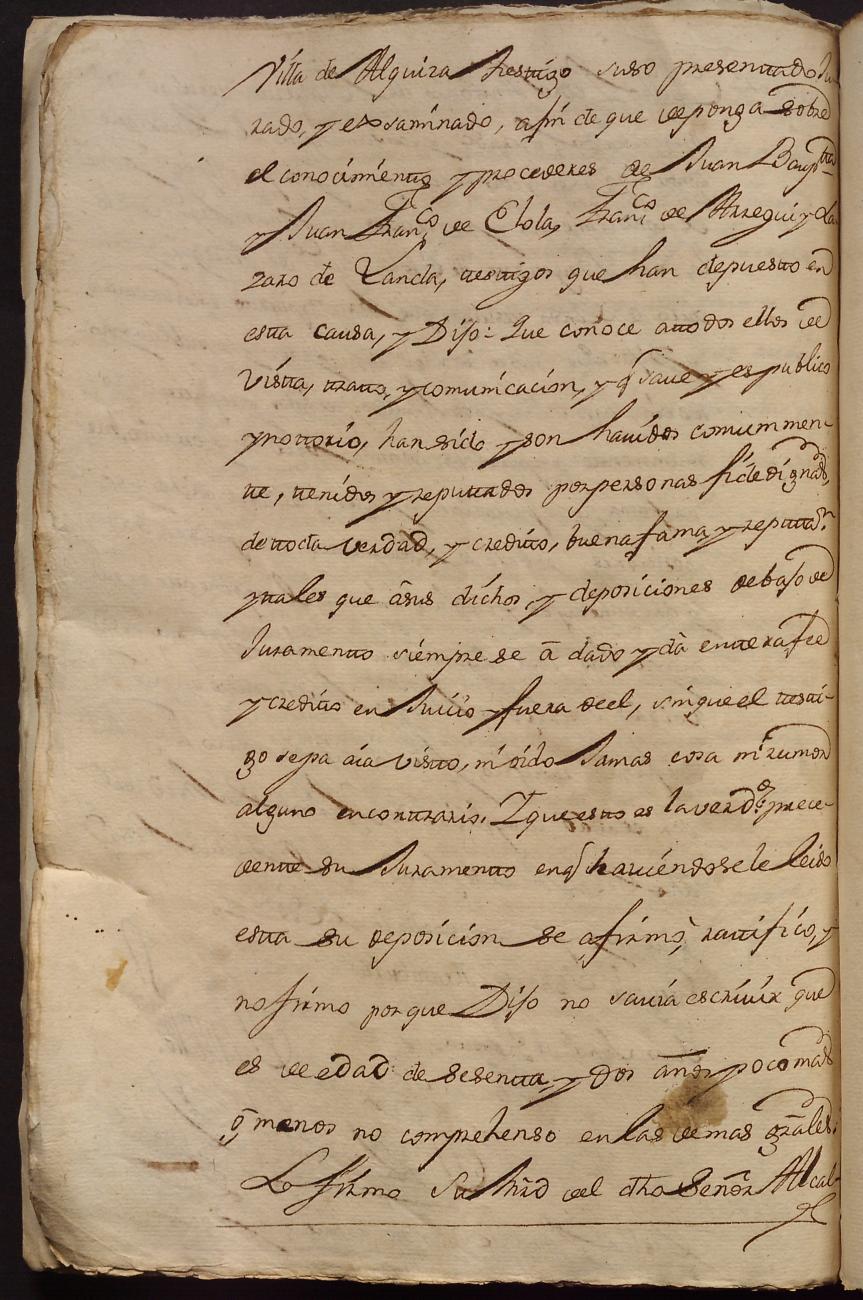 Villa de Alquiza testigo suso presentado Ju
rado, y exsaminado, afin de que deponga sobre
el conocimiento y procederes de Juan Bapta
y Juan Franco de Elola, Franco de Arregui y La
zaro de Landa, testtigos que han depuestto en
estta causa, y Dijo: Que conoce attodos ellos de
vistta, tratto, y comunicacion, y q save y es publico
y nottorio, han sido y son havidos comunmen-
tte, ttenidos y reputtados por personas fidedignas,
de ttoda verdad, y creditto, buena fama, y reputtaon
y tales que a sus dichos, y deposiciones debajo de
Juramentto siempre se à dado y dà enttera fee
y creditto en Juicio y fuera de el, sin que el testti-
go sepa aia vistto, ni oido Jamas cosa ni rumor
alguno en conttrario. Y que estto es la verdd prece-
dentte su Juramentto en q haviendosele leido
estta su deposicion se afirmò, rattificò, y
no firmo porque Dijo no savia escrivir que
es de edad de sesentta, y dos años poco mas
ò menos no comprehenso en las demas grales.
Lo firmo su Mrd del dho Señor Alcal-